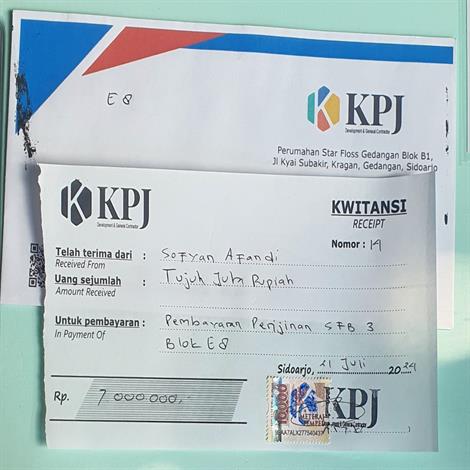 E8
KPJ
Development & General Contractor
Perumahan Star Floss Gedangan Blok B1,
Jl Kyai Subakir, Kragan, Gedangan, Sidoarjo
KPJ
Development & General Contractor
KWITANSI
RECEIPT
Nomor : 19
Telah terima dari : Sofyan Afandi
Received From
Uang sejumlah : Tujuh Juta Rupiah
Amount Received
Untuk pembayaran : Pembayaran Perijinan SFB 3
In Payment Of
Blok E8
Sidoarjo, 21 Juli 2024
Rp. 7000000,-
10000
METERAI
TEMPEL
KPJ